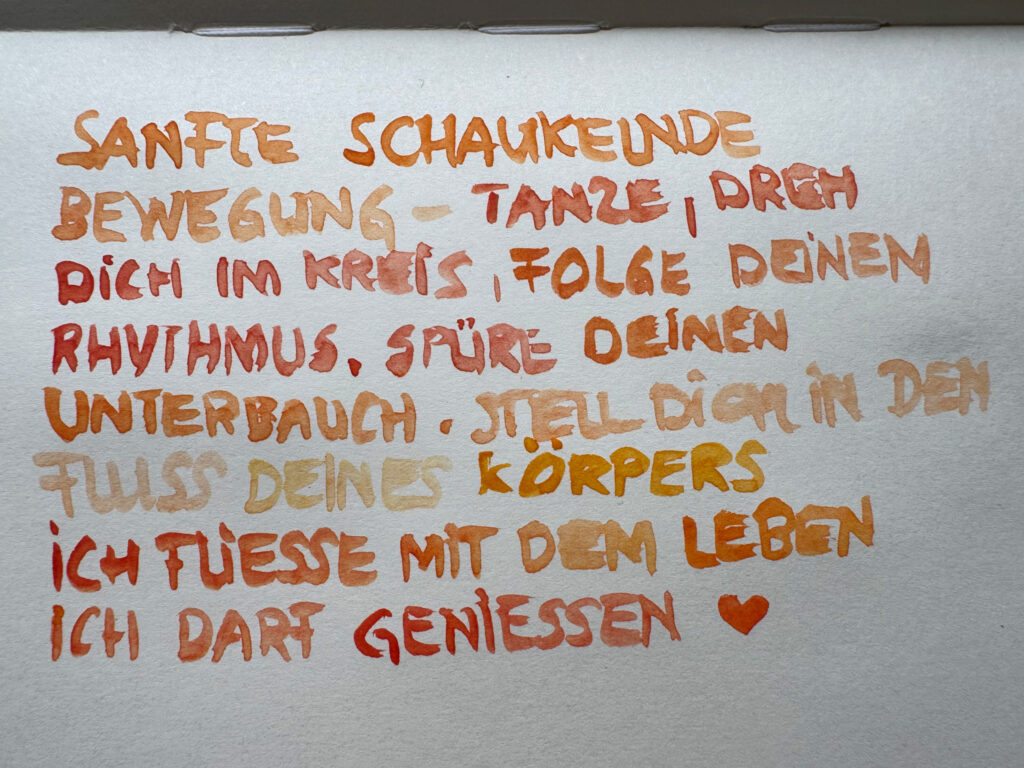 SANFTE SCHAUKELNDE
BEWEGUNG – TANZE, DREH
DICH IM KREIS, FOLGE DEINEN
RHYTHMUS. SPÜRE DEINEN
UNTERBAUCH. STELL DICH IN DEN
FLUSS DEINES KÖRPERS
ICH FLIESSE MIT DEM LEBEN
ICH DARF GENIESSEN ♥